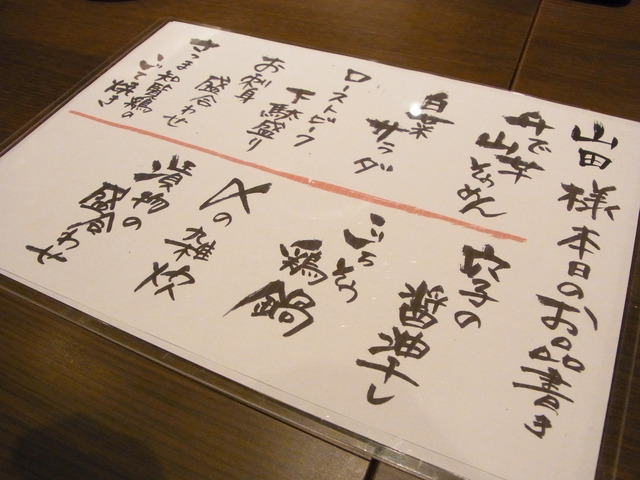 山田様本日のお品書き
山芋そうめん
白菜
サラダ
ローストビーフ
下駄盛り
お刺身
盛合わせ
さつま知覧鶏の
いしで焼き
穴子の
醤油干し
鶏鍋
〆の雑炊
漬物の
盛合わせ